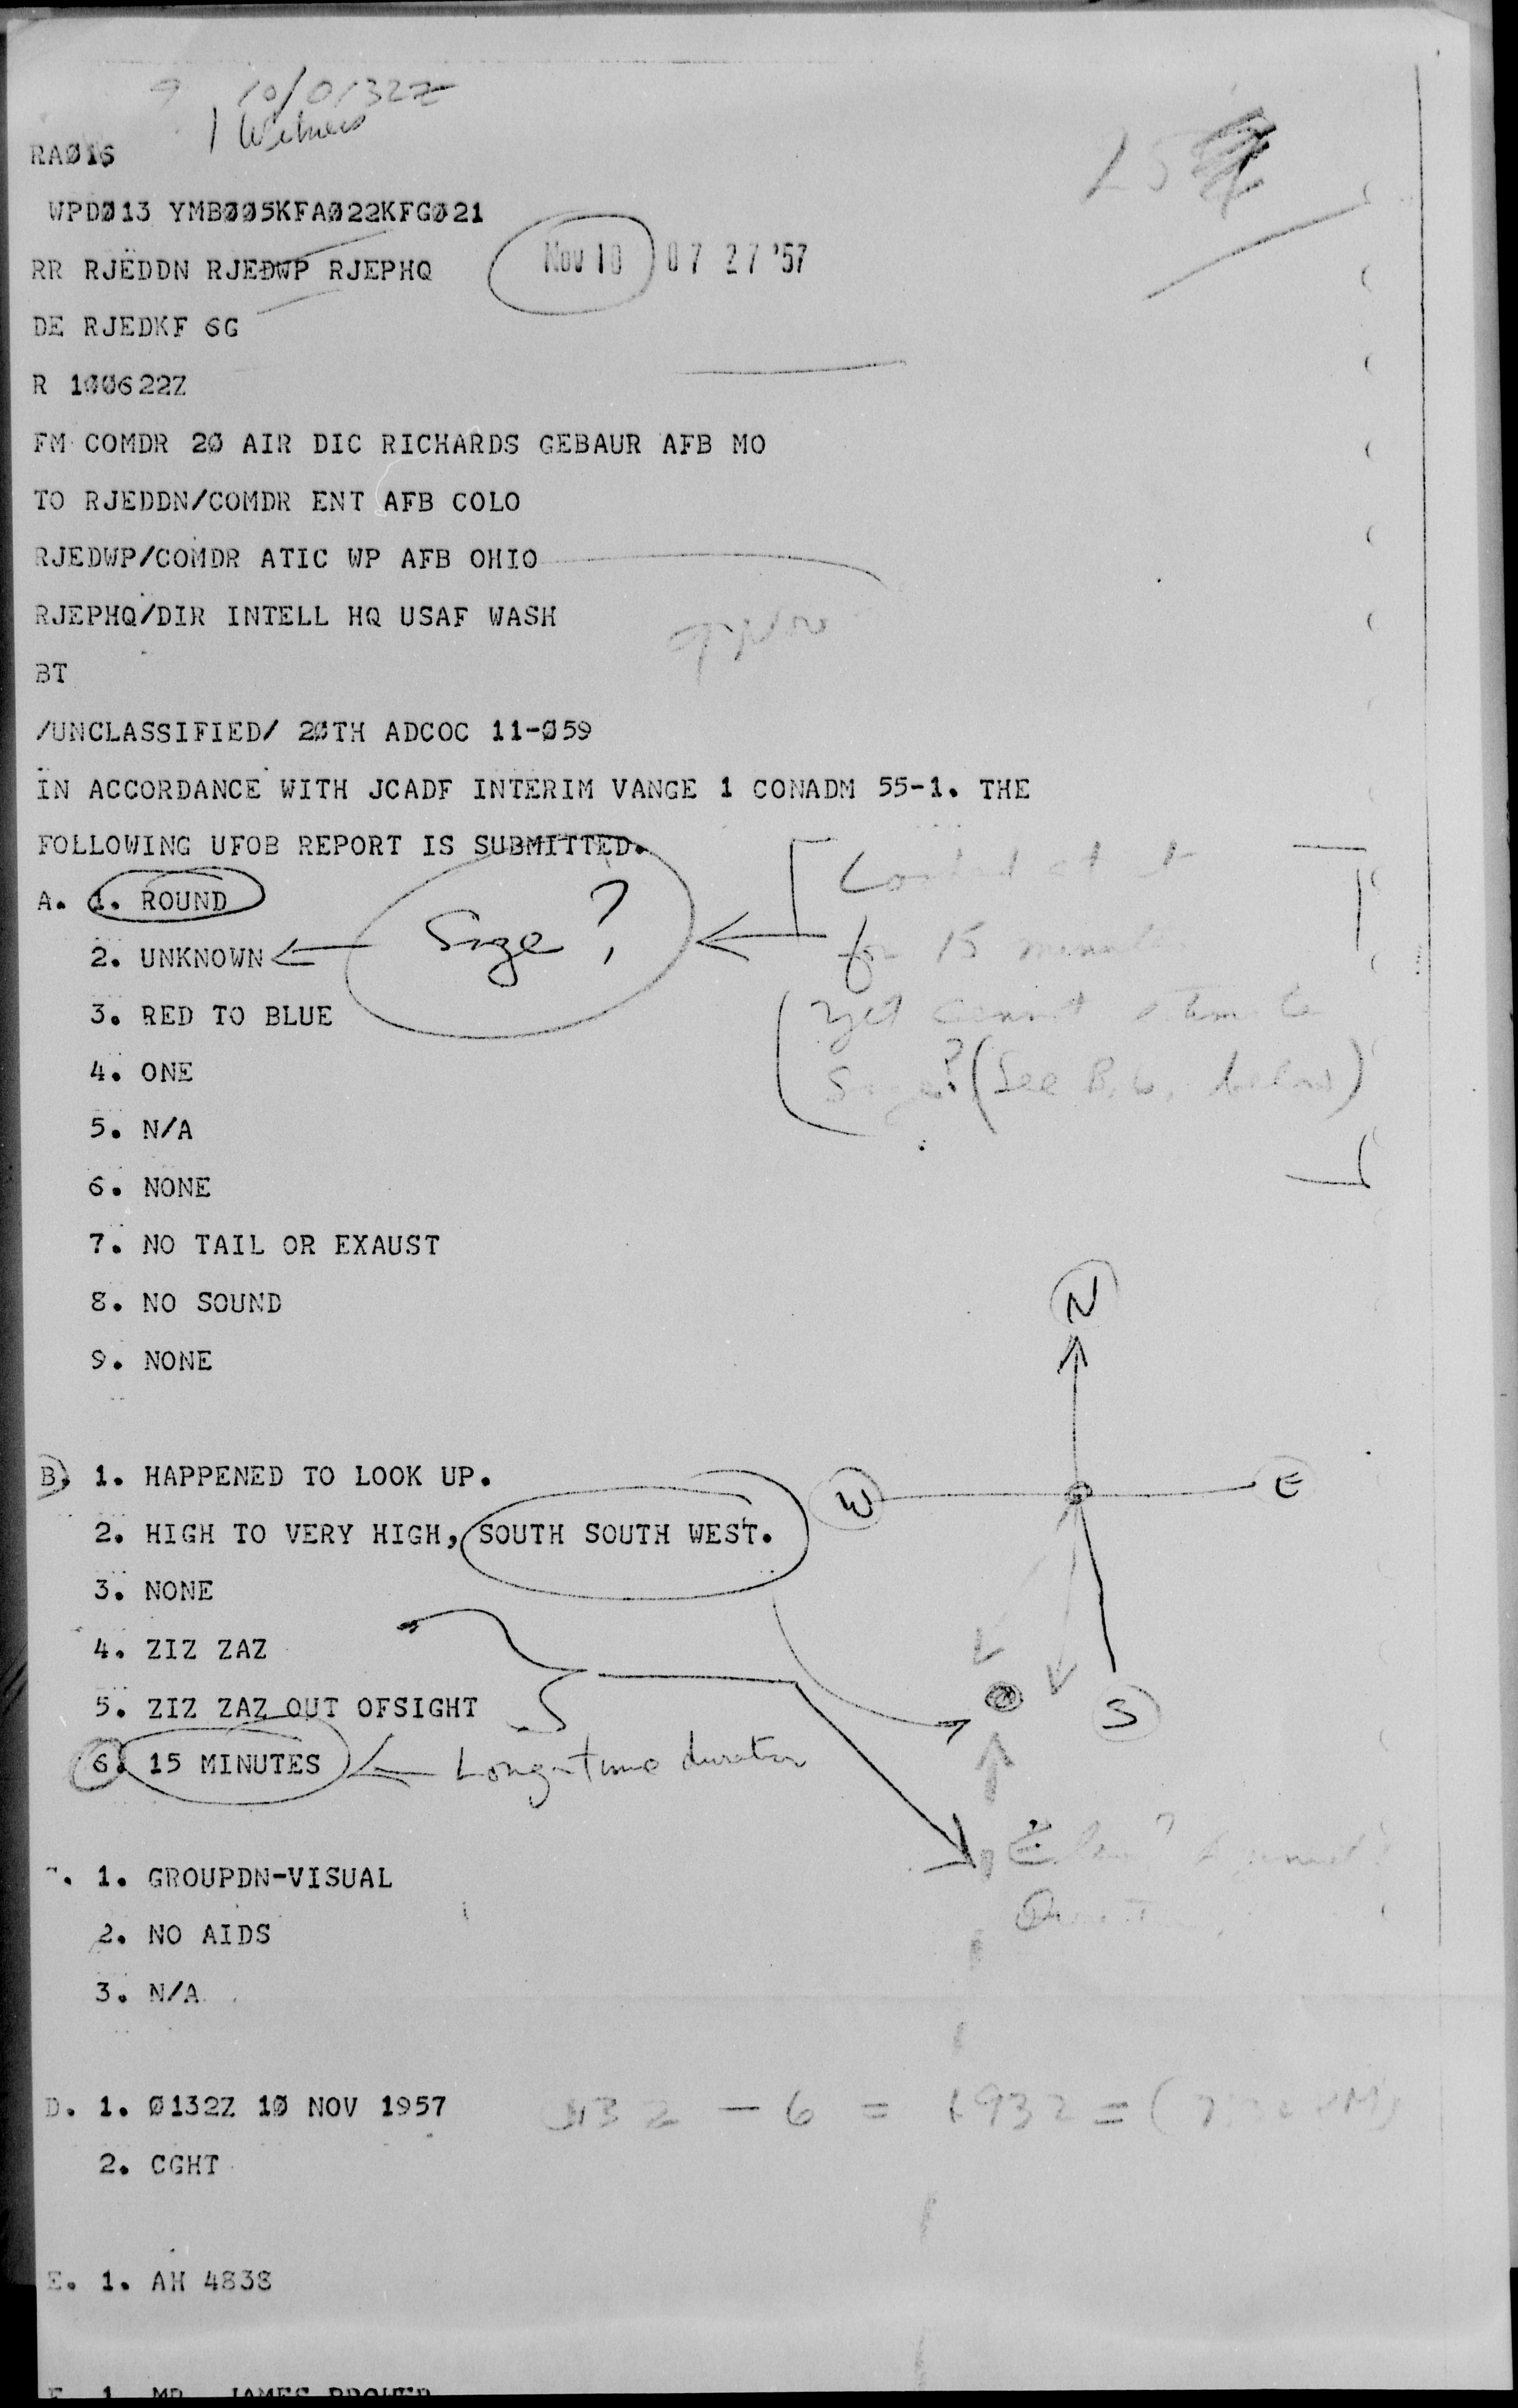 10/0132Z
1 Witness
RAØ16
WPDØ13 YMBØØ5KFAØ22KFGØ21
RR RJEDDN RJEDWP RJEPHQ
NOV 10 07 27 '57
DE RJEDKF 6G
R 1ØØ622Z
FM COMDR 2Ø AIR DIC RICHARDS GEBAUR AFB MO
TO RJEDDN/COMDR ENT AFB COLO
RJEDWP/COMDR ATIC WP AFB OHIO
RJEPHQ/DIR INTELL HQ USAF WASH
BT
/UNCLASSIFIED/ 2ØTH ADCOC 11-Ø59
IN ACCORDANCE WITH JCADF INTERIM VANGE 1 CONADM 55-1. THE
FOLLOWING UFOB REPORT IS SUBMITTED.
A. 1. ROUND
Size?
Looked at it
for 15 minutes
yet cannot estimate
Size? (See B, 6, below)
2. UNKNOWN
3. RED TO BLUE
4. ONE
5. N/A
6. NONE
7. NO TAIL OR EXAUST
8. NO SOUND
9. NONE
N
W
E
S
B. 1. HAPPENED TO LOOK UP.
2. HIGH TO VERY HIGH, SOUTH SOUTH WEST.
3. NONE
4. ZIZ ZAZ
5. ZIZ ZAZ OUT OFSIGHT
6. 15 MINUTES
Long-time duration
1. GROUPDN-VISUAL
2. NO AIDS
3. N/A
D. 1. Ø132Z 1Ø NOV 1957
0132 - 6 = 1932 = (7:32 PM)
2. CGHT
E. 1. AH 4838
F 1 MR. JAMES BROWER